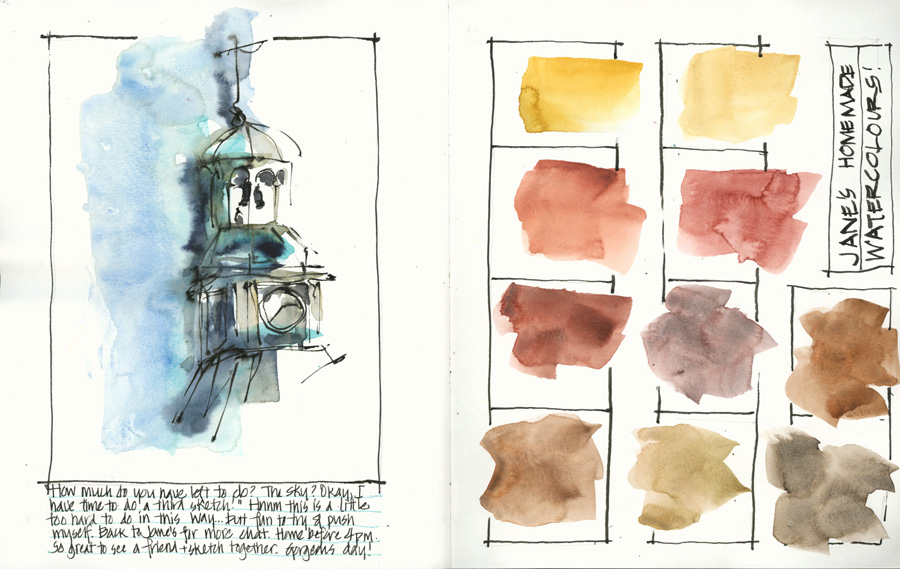 "How much do you have left to do? The sky? Okay, I
have time to do a third sketch!" Hmmm this is a little
too hard to do in this way...but fun to try & push
myself. Back to Jane's for more chat. Home before 4pm.
So great to see a friend + sketch together. Gorgeous day!
JANE'S HOMEMADE
WATERCOLOURS!